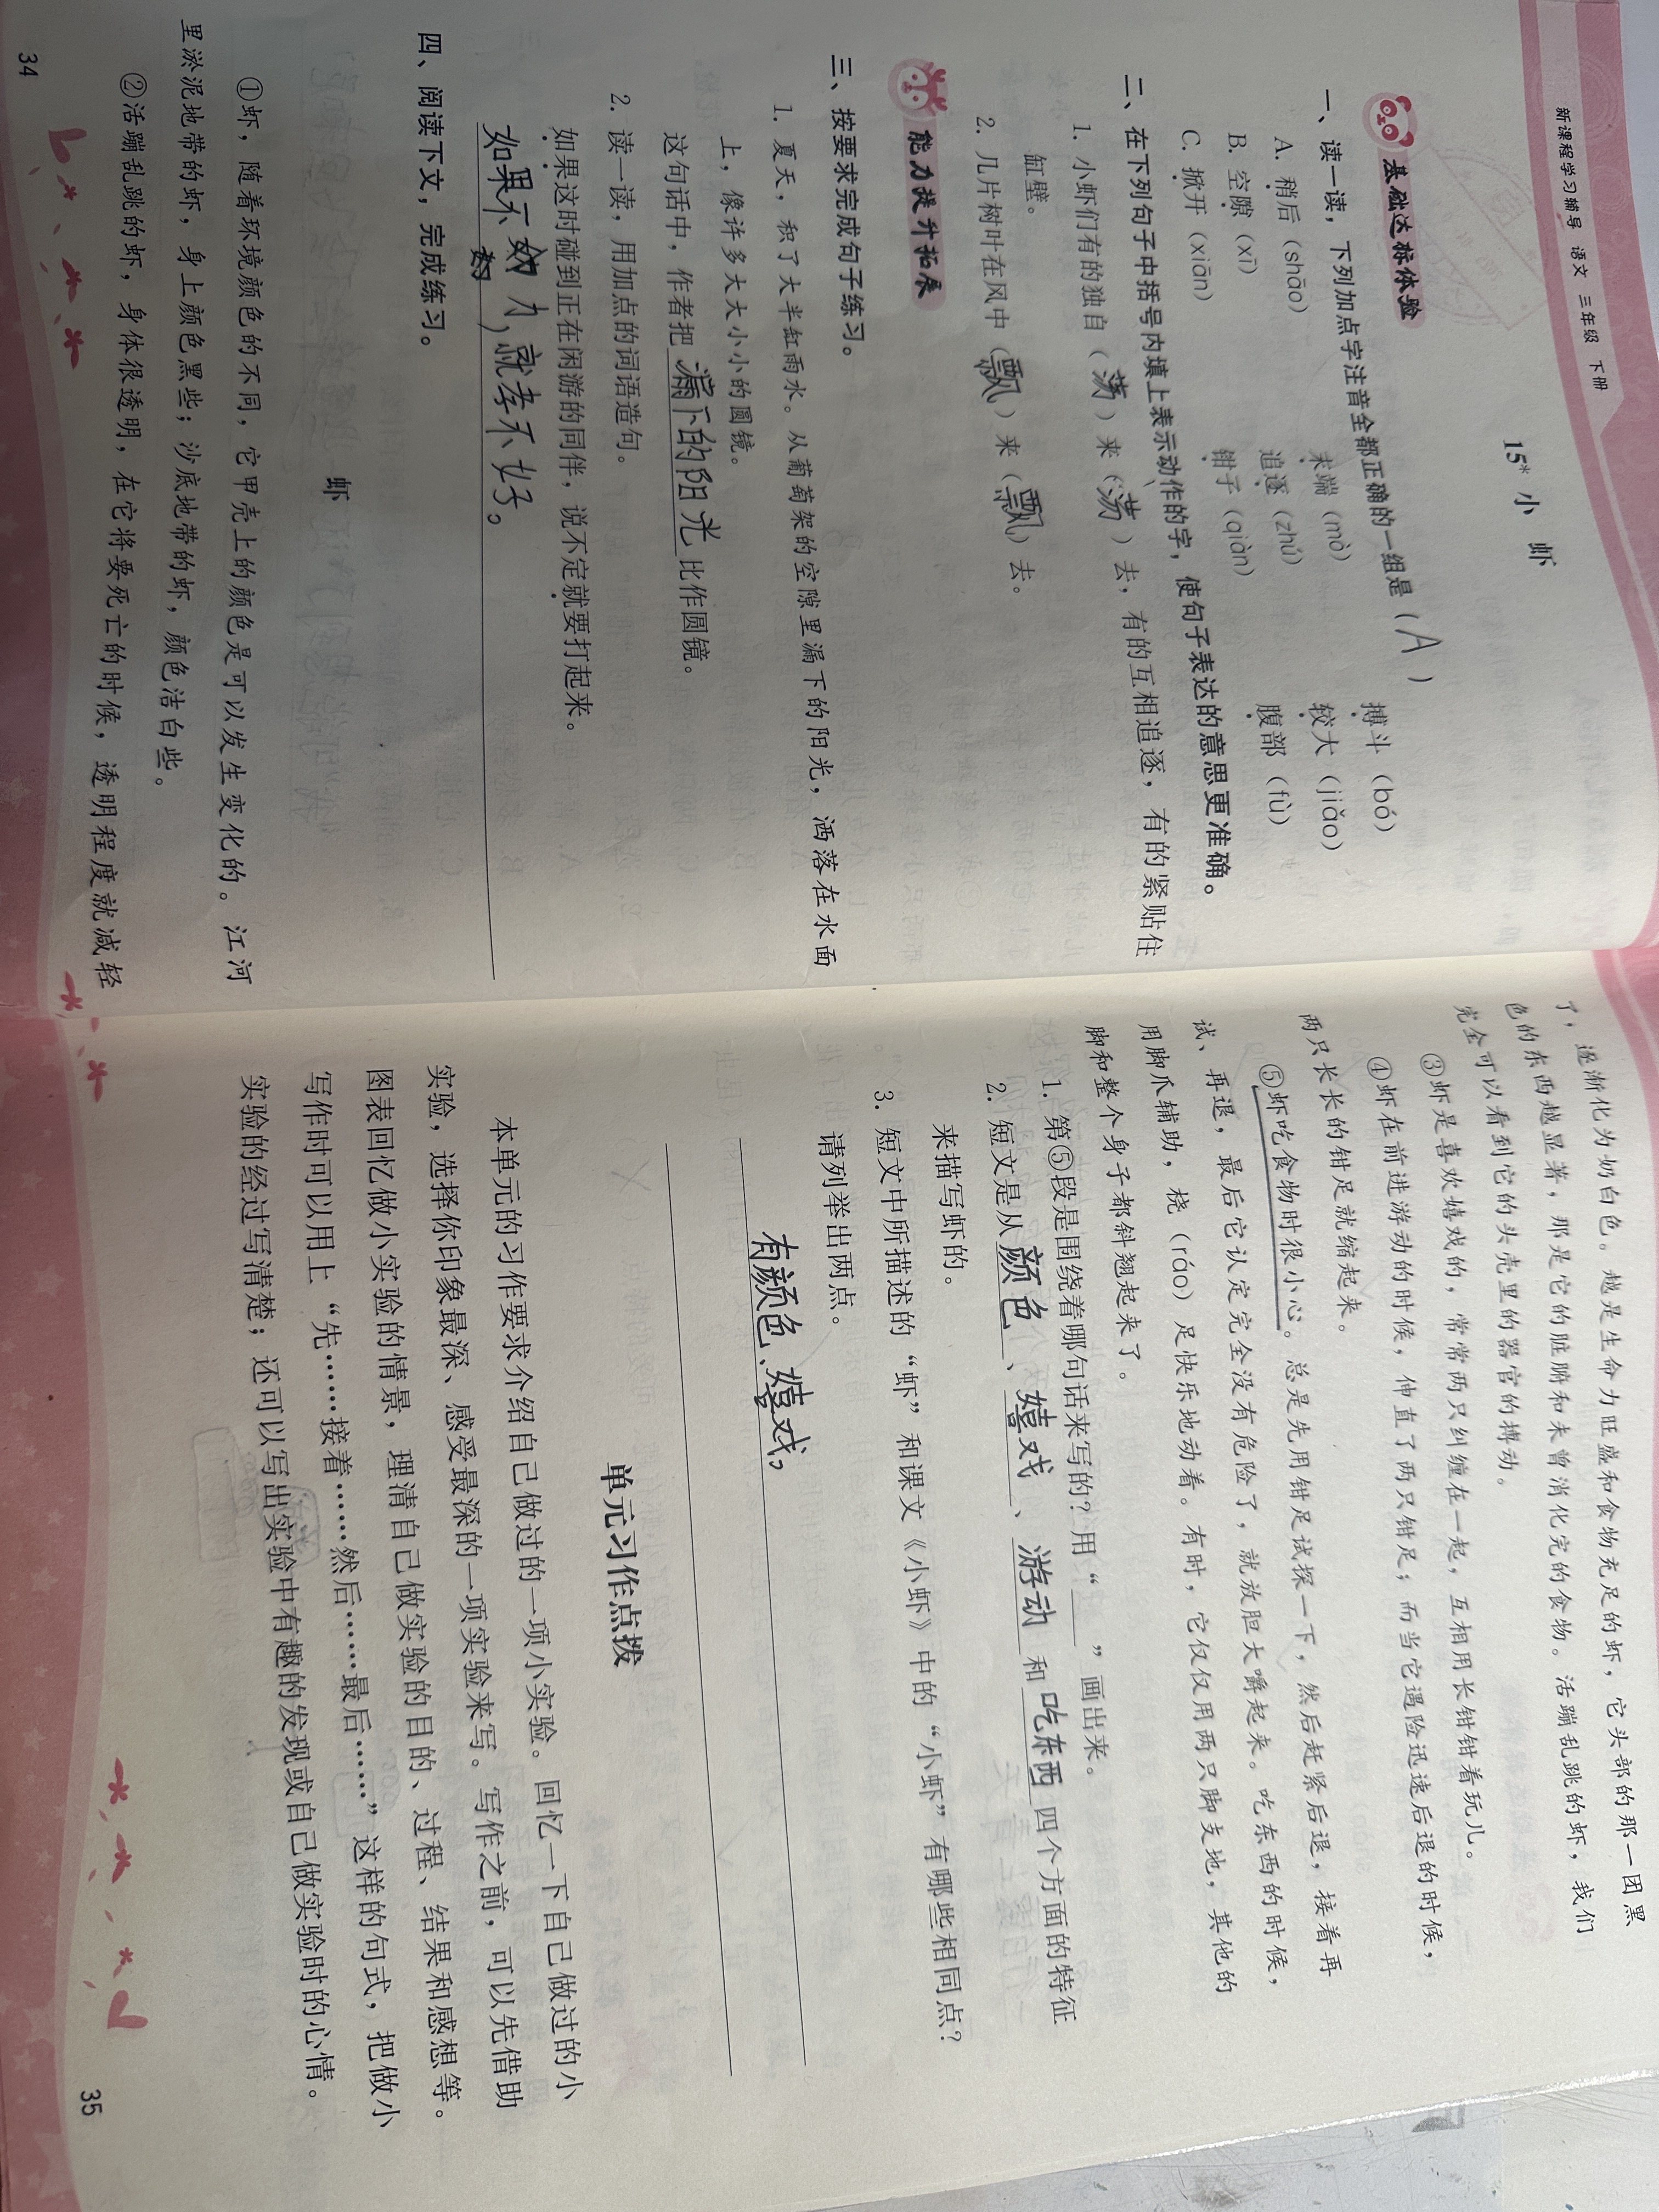 新课程学习辅导 语文 三年级 下册
15* 小 虾
基础达标体验
一、读一读，下列加点字注音全都正确的一组是（A）
A. 稍后（shāo） 末端（mò） 搏斗（bó）
B. 空隙（xī） 追逐（zhú） 较大（jiǎo）
C. 掀开（xiān） 钳子（qiàn） 腹部（fù）
二、在下列句子中括号内填上表示动作的字，使句子表达的意思更准确。
1. 小虾们有的独自（荡）来（荡）去，有的互相追逐，有的紧贴住
缸壁。
2. 几片树叶在风中（飘）来（飘）去。
能力提升拓展
三、按要求完成句子练习。
1. 夏天，积了大半缸雨水。从葡萄架的空隙里漏下的阳光，洒落在水面
上，像许多大大小小的圆镜。
这句话中，作者把漏下的阳光比作圆镜。
2. 读一读，用加点的词语造句。
如果这时碰到正在闲游的同伴，说不定就要打起来。
如果不努力，就考不好。
四、阅读下文，完成练习。
虾
①虾，随着环境颜色的不同，它甲壳上的颜色是可以发生变化的。江河
里淤泥地带的虾，身上颜色黑些；沙底地带的虾，颜色洁白些。
②活蹦乱跳的虾，身体很透明，在它将要死亡的时候，透明程度就减轻
34
了，逐渐化为奶白色。越是生命力旺盛和食物充足的虾，它头部的那一团黑
色的东西越显著，那是它的脏腑和未曾消化完的食物。活蹦乱跳的虾，我们
完全可以看到它的头壳里的器官的搏动。
③虾是喜欢嬉戏的，常常两只纠缠在一起，互相用长钳钳着玩儿。
④虾在前进游动的时候，伸直了两只钳足；而当它遇险迅速后退的时候，
两只长长的钳足就缩起来。
⑤虾吃食物时很小心。总是先用钳足试探一下，然后赶紧后退，接着再
试、再退，最后它认定完全没有危险了，就放胆大嚼起来。吃东西的时候，
用脚爪辅助，桡（ráo）足快乐地动着。有时，它仅仅用两只脚支地，其他的
脚和整个身子都斜翘起来了。
1. 第⑤段是围绕着哪句话来写的？用“____”画出来。
2. 短文是从颜色、嬉戏、游动和吃东西四个方面的特征
来描写虾的。
3. 短文中所描述的“虾”和课文《小虾》中的“小虾”有哪些相同点？
请列举出两点。
有颜色、嬉戏，
单元习作点拨
本单元的习作要求介绍自己做过的一项小实验。回忆一下自己做过的小
实验，选择你印象最深、感受最深的一项实验来写。写作之前，可以先借助
图表回忆做小实验的情景，理清自己做实验的目的、过程、结果和感想等。
写作时可以用上“先……接着……然后……最后……”这样的句式，把做小
实验的经过写清楚；还可以写出实验中有趣的发现或自己做实验时的心情。
35